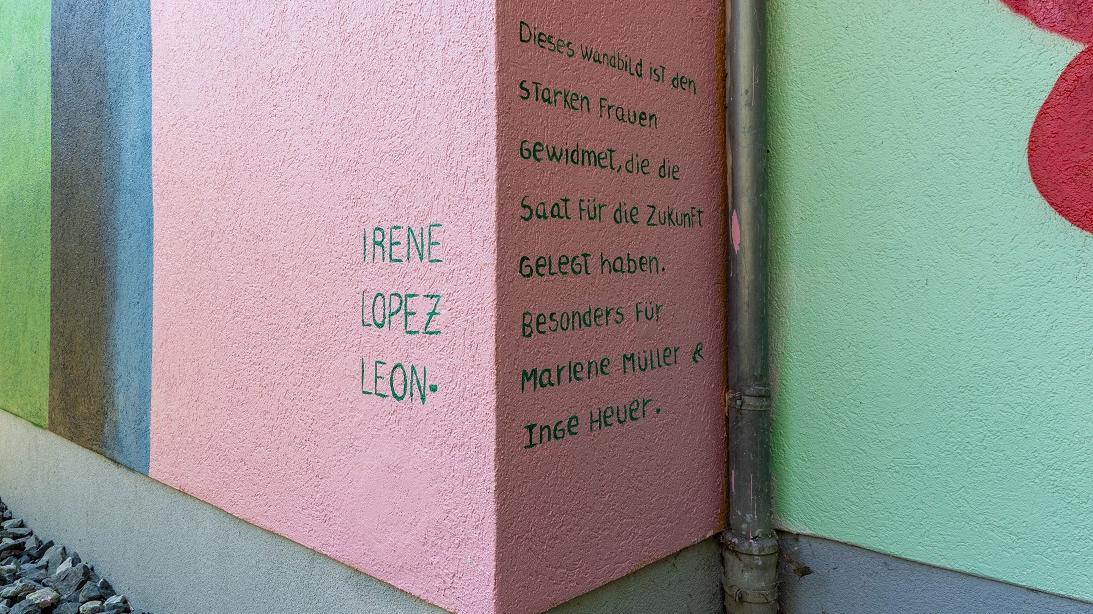 IRENE
LOPEZ
LEON.
Dieses Wandbild ist den
starken Frauen
gewidmet, die die
Saat für die Zukunft
gelegt haben.
Besonders für
Marlene Müller &
Inge Heuer.